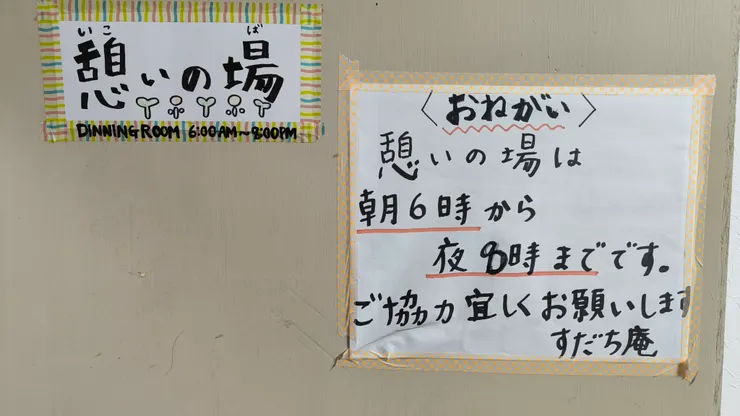 いこ ば
憩いの場
DINNING ROOM 6:00AM~8:00PM
〈おねがい〉
憩いの場は
朝6時から
夜8時までです。
ご協力宜しくお願いします
すだち庵